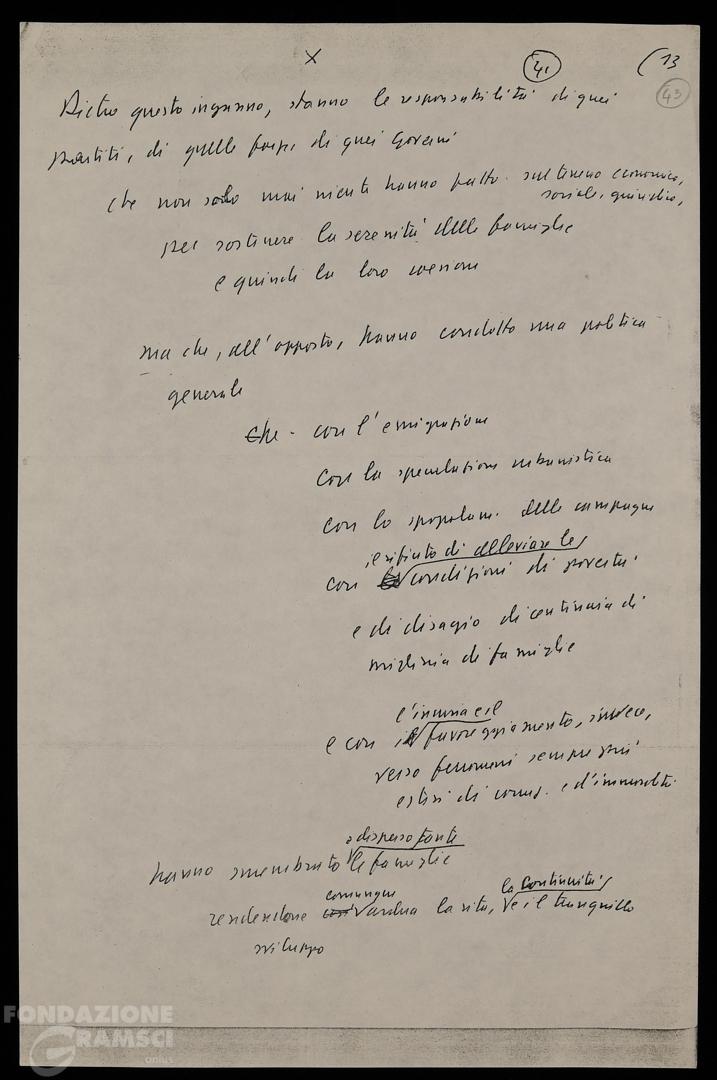 X 41 (13
43
Dietro questo inganno, stanno le responsabilità di quei
partiti, di quelle forze, di quei Governi
che non solo mai niente hanno fatto sul terreno economico,
sociale, giuridico,
per sostenere la serenità delle famiglie
e quindi la loro coesione
ma che, all'opposto, hanno condotto una politica
generale
che - con l'emigrazione
con la speculazione urbanistica
con lo spopolam. delle campagne
il rifiuto di alleviare le
con condizioni di povertà
e di disagio di centinaia di
migliaia di famiglie
l'incuria e il
e con il favoreggiamento, invece,
verso fenomeni sempre più
estesi di corruz. e d'immoralità
e disperso tante
hanno smembrato le famiglie
comunque la continuità
rendendone così ardua la vita, e il tranquillo
sviluppo
FONDAZIONE
GRAMSCI
onlus